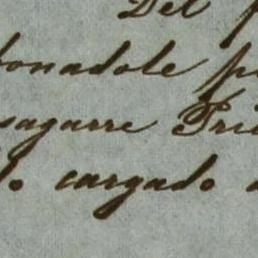 Del p
onadole p
sagarre Pri
lo cargado